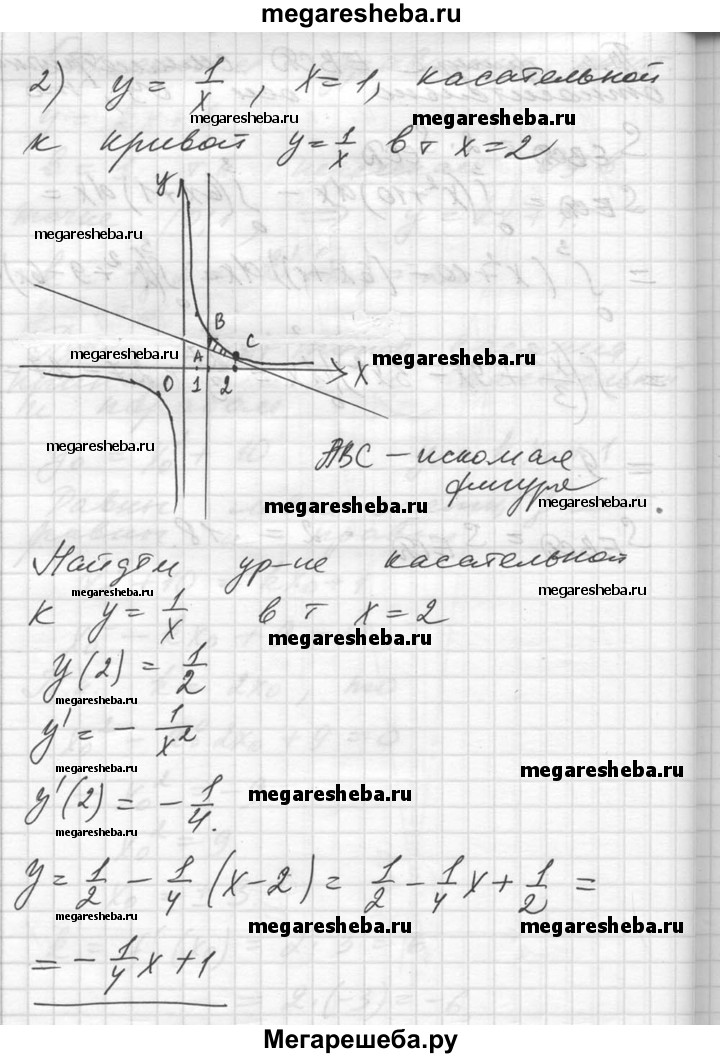 megaresheba.ru
2) y = 1/x, x = 1, касательной
megaresheba.ru megaresheba.ru
к кривой y = 1/x в т x = 2
y
megaresheba.ru
B
C
megaresheba.ru A megaresheba.ru
0 1 2 x
megaresheba.ru
ABC – искомая
фигура.
megaresheba.ru megaresheba.ru
Найдём ур-ие касательной
megaresheba.ru megaresheba.ru
к y = 1/x в т x = 2
megaresheba.ru
y(2) = 1/2
megaresheba.ru
y' = - 1/x²
megaresheba.ru megaresheba.ru
y'(2) = - 1/4.
megaresheba.ru
megaresheba.ru
y = 1/2 - 1/4 (x-2) = 1/2 - 1/4 x + 1/2 =
megaresheba.ru megaresheba.ru megaresheba.ru
= - 1/4 x + 1
Мегарешеба.ру